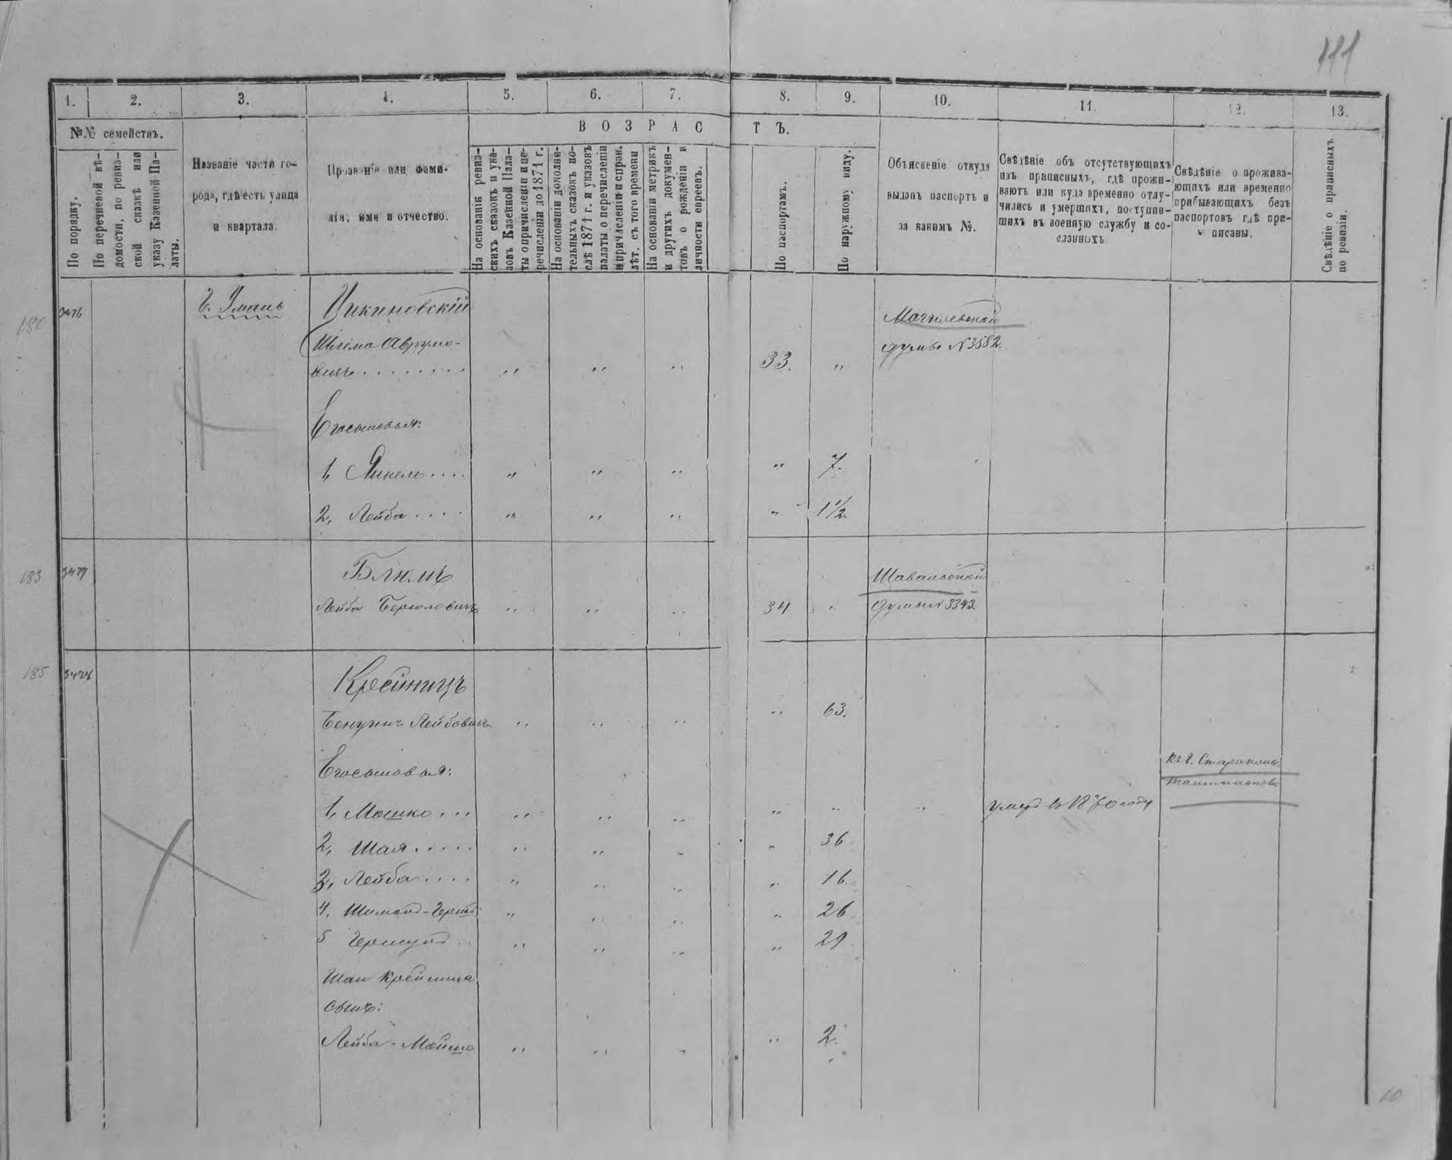 111
1. 2. 3. 4. 5. 6. 7. 8. 9. 10. 11. 12. 13.
№№ семействъ.
По порядку.
По перечневой вѣ-
домости, по ревиз-
ской сказкѣ или
указу Казенной Па-
латы.
Названіе части го-
рода, гдѣ есть улица
и кварталъ.
Прозваніе или фами-
лія, имя и отчество.
ВОЗРАСТЪ.
На основаніи ревиз-
скихъ сказокъ и ука-
зовъ Казенной Пала-
ты о причисленіи и пе-
речисленіи до 1871 г.
На основаніи дополни-
тельныхъ сказокъ по-
слѣ 1871 г. и указовъ
палаты о перечисленіи
и причисленіи и справ.
лѣт. съ того времени
На основаніи метрикъ
и другихъ докумен-
товъ о рожденіи и
личности евреевъ.
По паспортамъ.
По наружному виду.
Объясненіе откуда
выданъ паспортъ и
за какомъ №.
Свѣдѣніе объ отсутствующихъ
изъ приписныхъ, гдѣ прожи-
ваютъ или куда временно отлу-
чились и умершихъ, поступив-
шихъ въ военную службу и со-
сланныхъ
Свѣдѣніе о прожива-
ющихъ или временно
прибывающихъ безъ
паспортовъ гдѣ при-
писаны.
Свѣдѣніе о приписныхъ
по ревизіи.
180 3476 г. Умань Цикиновскій
Шлёма Аврумо-
вичъ . . . . . . . . „ „ „ 33. „ Могилевской
думы № 3582.
Его сыновья:
1, Янкель . . . . „ „ „ „ 7.
2, Лейба . . . . „ „ „ „ 1½.
183 3477 Блюмъ
Лейба Берковичъ „ „ „ 34 „ Шавельской
думы № 3343.
185 3478 Крейницъ
Лейбовичъ. „ „ „ „ 63.
Его сыновья:
1, Мошко . . . „ „ „ „ „ „ умеръ въ 1870 году
Къ г. Староконс-
тантинову
2, Шая . . . . . „ „ „ „ 36
3, Лейба . . . . „ „ „ „ 16
4. Шимонъ-Герш „ „ „ „ 26
5 . . „ „ „ „ 29
Шаи Крейница
сынъ:
Лейба-Мошко „ „ „ „ 2.